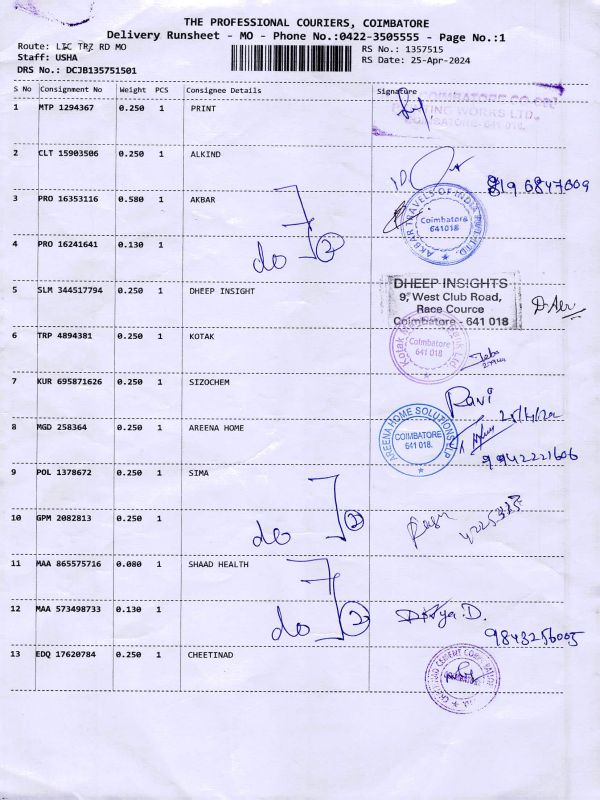 THE PROFESSIONAL COURIERS, COIMBATORE
Delivery Runsheet - MO - Phone No.:0422-3505555 - Page No.:1
Route: LIC TRZ RD MO
RS No.: 1357515
Staff: USHA
RS Date: 25-Apr-2024
DRS No.: DCJB135751501
S No Consignment No Weight PCS Consignee Details Signature
1 MTP 1294367 0.250 1 PRINT
WORKS LTD.
COIMBATORE- 641 018.
2 CLT 15903506 0.250 1 ALKIND
3 PRO 16353116 0.580 1 AKBAR
AKBAR TRAVELS OF INDIA PVT. LTD.
Coimbatore
641018
4 PRO 16241641 0.130 1
do 2
5 SLM 344517794 0.250 1 DHEEP INSIGHT
DHEEP INSIGHTS
9, West Club Road,
Race Cource
Coimbatore - 641 018
6 TRP 4894381 0.250 1 KOTAK
Coimbatore
641 018
7 KUR 695871626 0.250 1 SIZOCHEM
Ravi
8 MGD 258364 0.250 1 AREENA HOME
AREENA HOME SOLUTIONS LLP
COIMBATORE
641 018.
9942221606
9 POL 1378672 0.250 1 SIMA
10 GPM 2082813 0.250 1
do 2
11 MAA 865575716 0.080 1 SHAAD HEALTH
12 MAA 573498733 0.130 1
do 2
Divya.D.
9843256005
13 EDQ 17620784 0.250 1 CHEETINAD